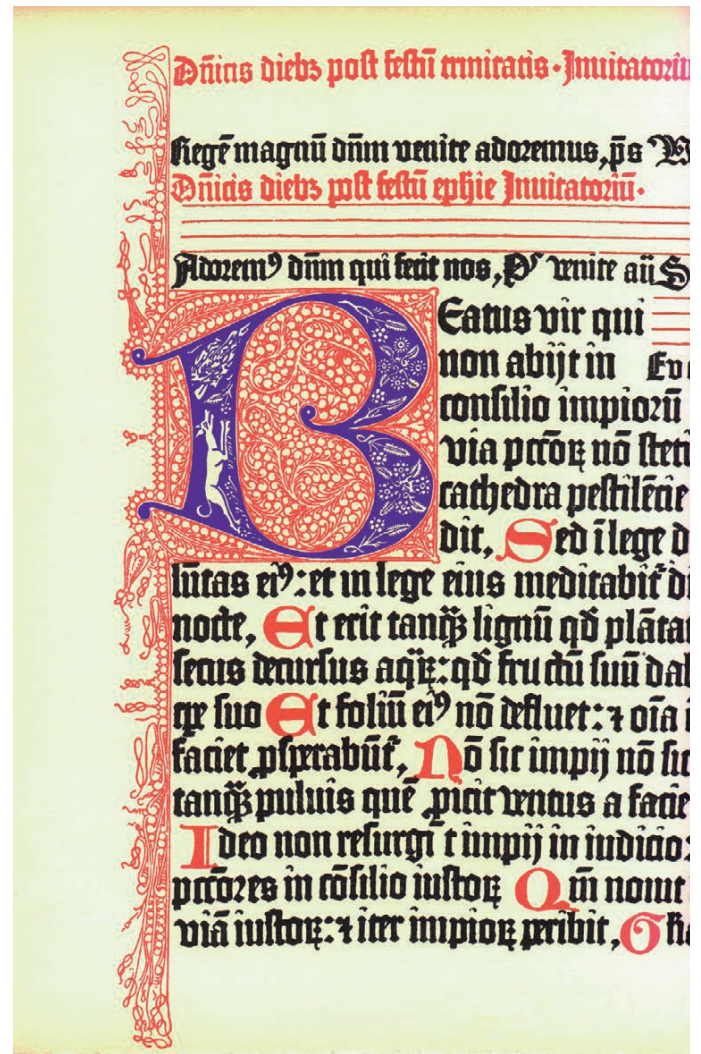 Dñicis diebꝫ post festũ trinitatis. Inuitatoriu
Regẽ magnũ dñm venite adoremus, p̃s V
Dñicis diebꝫ post festũ ephie Inuitatoriũ.
Adoremꝰ dñm qui fecit nos, Pˢ venite añ S
Beatus vir qui
non abijt in Ev
consilio impiorũ
via pctõꝝ nõ steti
cathedra pestilẽcie
dit, Sed ĩ lege d
lũtas eiꝰ: et in lege eius meditabit᷑ di
nocte, Et erit tanqꝫ lignũ qð plãta
secus decursus aqꝝ: qð fructũ suũ dab
tꝑe suo Et foliũ eiꝰ nõ defluet: ⁊ oĩa
faciet ꝓsperabũt᷑, Nõ sic impij nõ sic
tanqꝫ puluis quẽ ꝓicit ventus a facie
Ideo non resurgũt impij in iudicio:
pctõres in cõsilio iustoꝝ Qm̃ nouit
viã iustoꝝ: ⁊ iter impioꝝ peribit, Gl̃ia